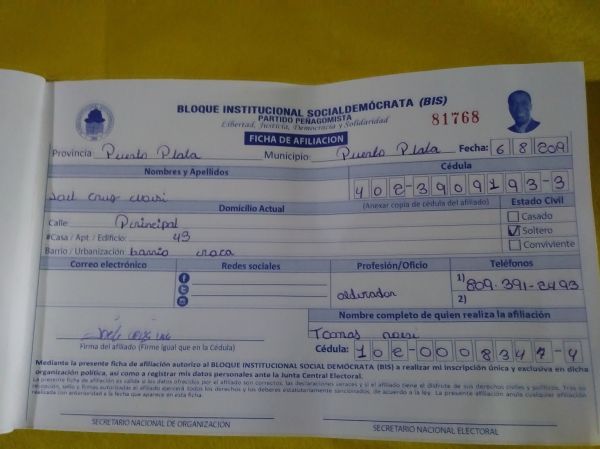 BLOQUE INSTITUCIONAL SOCIALDEMÓCRATA (BIS)
PARTIDO PEÑAGOMISTA
Libertad, Justicia, Democracia y Solidaridad
81768
FICHA DE AFILIACION
Provincia Puerto Plata Municipio: Puerto Plata Fecha: 6 8 209
Nombres y Apellidos Cédula
Joel Cruz 402-3909193-3
Domicilio Actual (Anexar copia de cédula del afiliado) Estado Civil
Calle: Principal Casado
#Casa / Apt. / Edificio: 43 Soltero
Barrio / Urbanización: barrio Conviviente
Correo electrónico Redes sociales Profesión/Oficio Teléfonos
1) 809-391-2493
2)
Nombre completo de quien realiza la afiliación
Tomas
Firma del afiliado (Firme igual que en la Cédula) Cédula: 102-0008347-4
Mediante la presente ficha de afiliación autorizo al BLOQUE INSTITUCIONAL SOCIAL DEMÓCRATA (BIS) a realizar mi inscripción única y exclusiva en dicha
organización política, así como a registrar mis datos personales ante la Junta Central Electoral.
La presente ficha de afiliación es válida si los datos ofrecidos por el afiliado son correctos, las declaraciones veraces y si el afiliado tiene el disfrute de sus derechos civiles y políticos. Tras su
recepción, sello y firmas autorizadas el afiliado ejercerá todos los derechos y los deberes estatutariamente sancionados, de acuerdo a la ley. La presente afiliación anula cualquier afiliación
realizada con anterioridad a la fecha que aparece en esta ficha.
SECRETARIO NACIONAL DE ORGANIZACIÓN SECRETARIO NACIONAL ELECTORAL